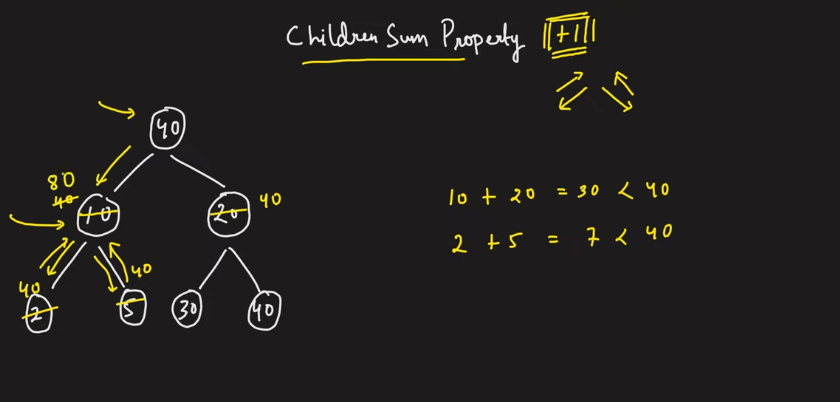 Children Sum Property +1
40
80
40
10 20 40
40 40
2 5 30 40
10 + 20 = 30 < 40
2 + 5 = 7 < 40